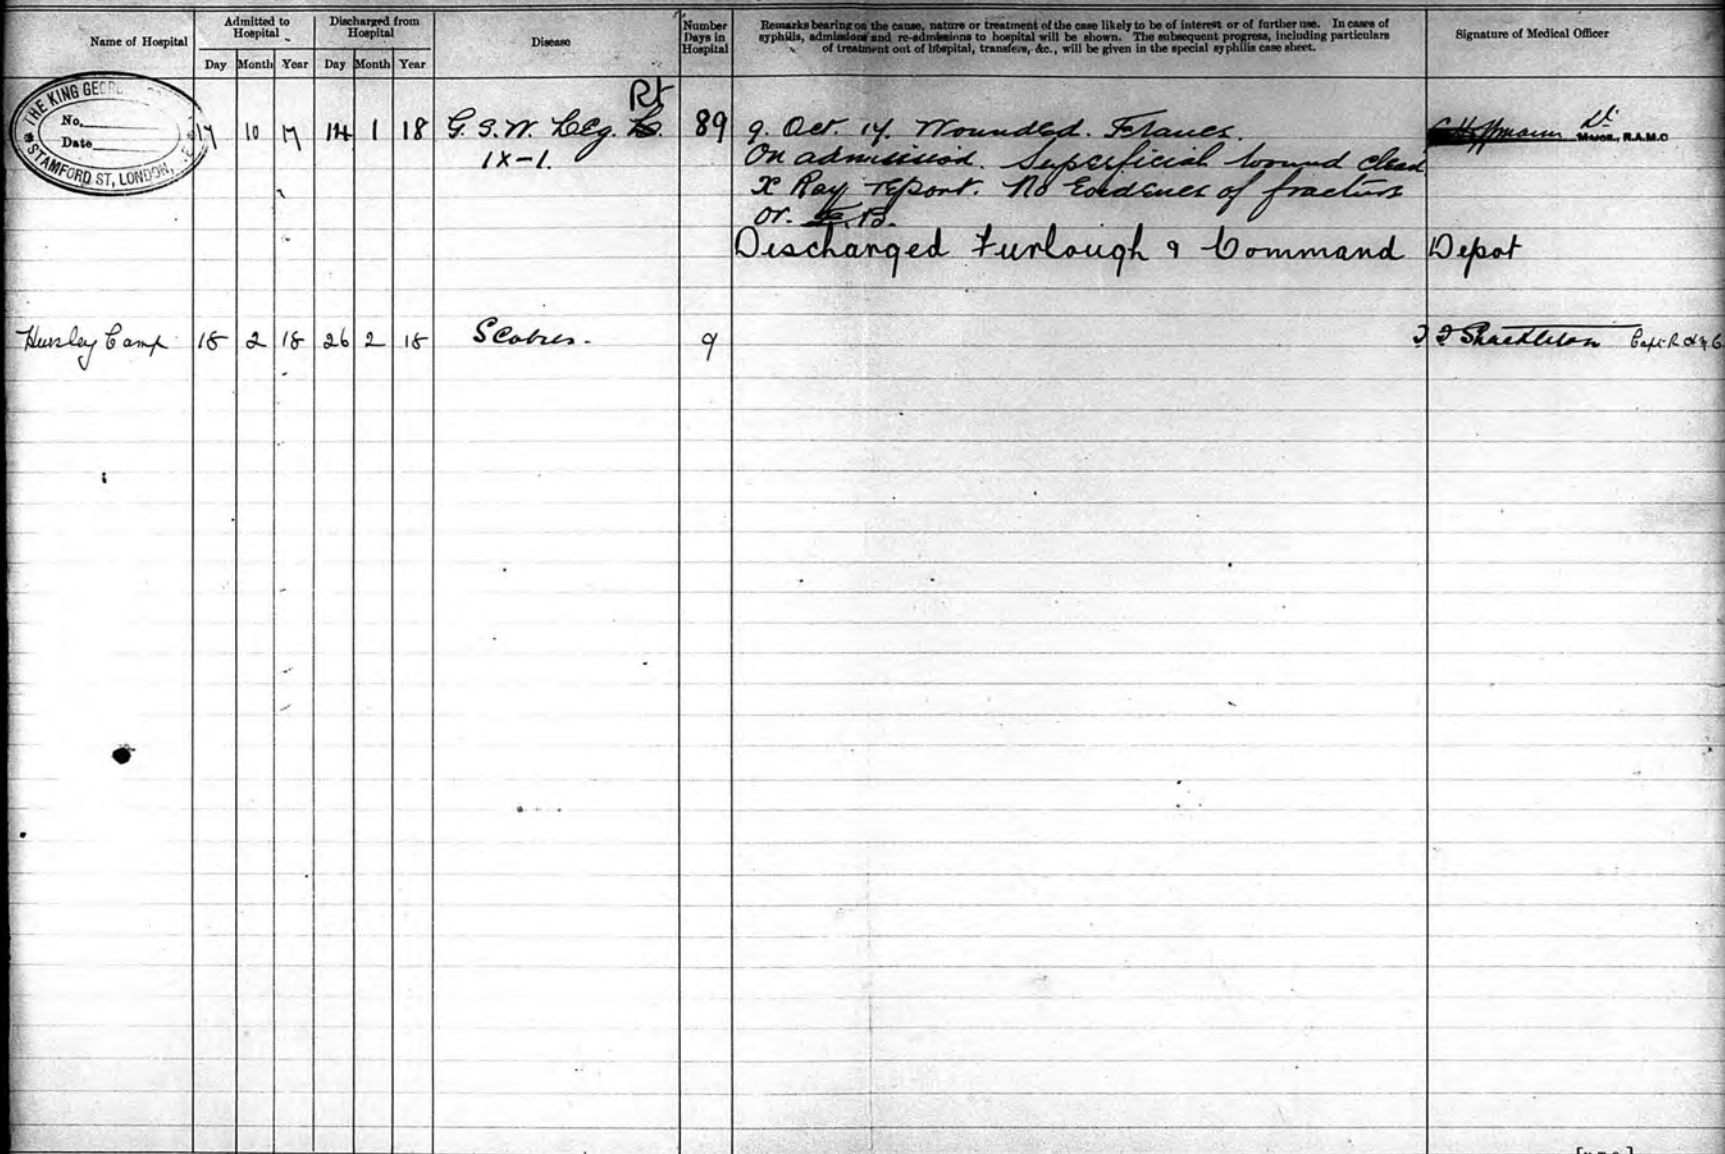 Name of Hospital
Admitted to Hospital
Day Month Year
Discharged from Hospital
Day Month Year
Disease
Number Days in Hospital
Remarks bearing on the cause, nature or treatment of the case likely to be of interest or of further use. In cases of
syphilis, admissions and re-admissions to hospital will be shown. The subsequent progress, including particulars
of treatment out of hospital, transfers, &c., will be given in the special syphilis case sheet.
Signature of Medical Officer
THE KING GEOR
No.
Date
STAMFORD ST, LONDON, S.E.
17 10 17 14 1 18 G. S. W. Leg. Rt 89 9. Oct. 17. Wounded. France. Lt. Major., R.A.M.C
IX-1. On admission. Superficial wound clean
X Ray report. No Evidence of fracture
or F.B.
Discharged Furlough & Command Depot
Hursley Camp 18 2 18 26 2 18 Scabies. 9 Shackleton Capt R.A.M.C